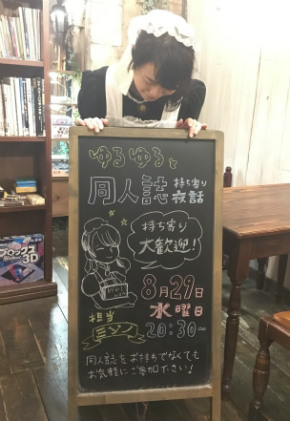 ゆるゆると
同人誌 持ち寄り
夜話
持ち寄り
大歓迎！
8月29日
水曜日
20:30～
担当
ミソノ
同人誌をお持ちでなくても
お気軽にご参加下さい！
ブロックス
3D